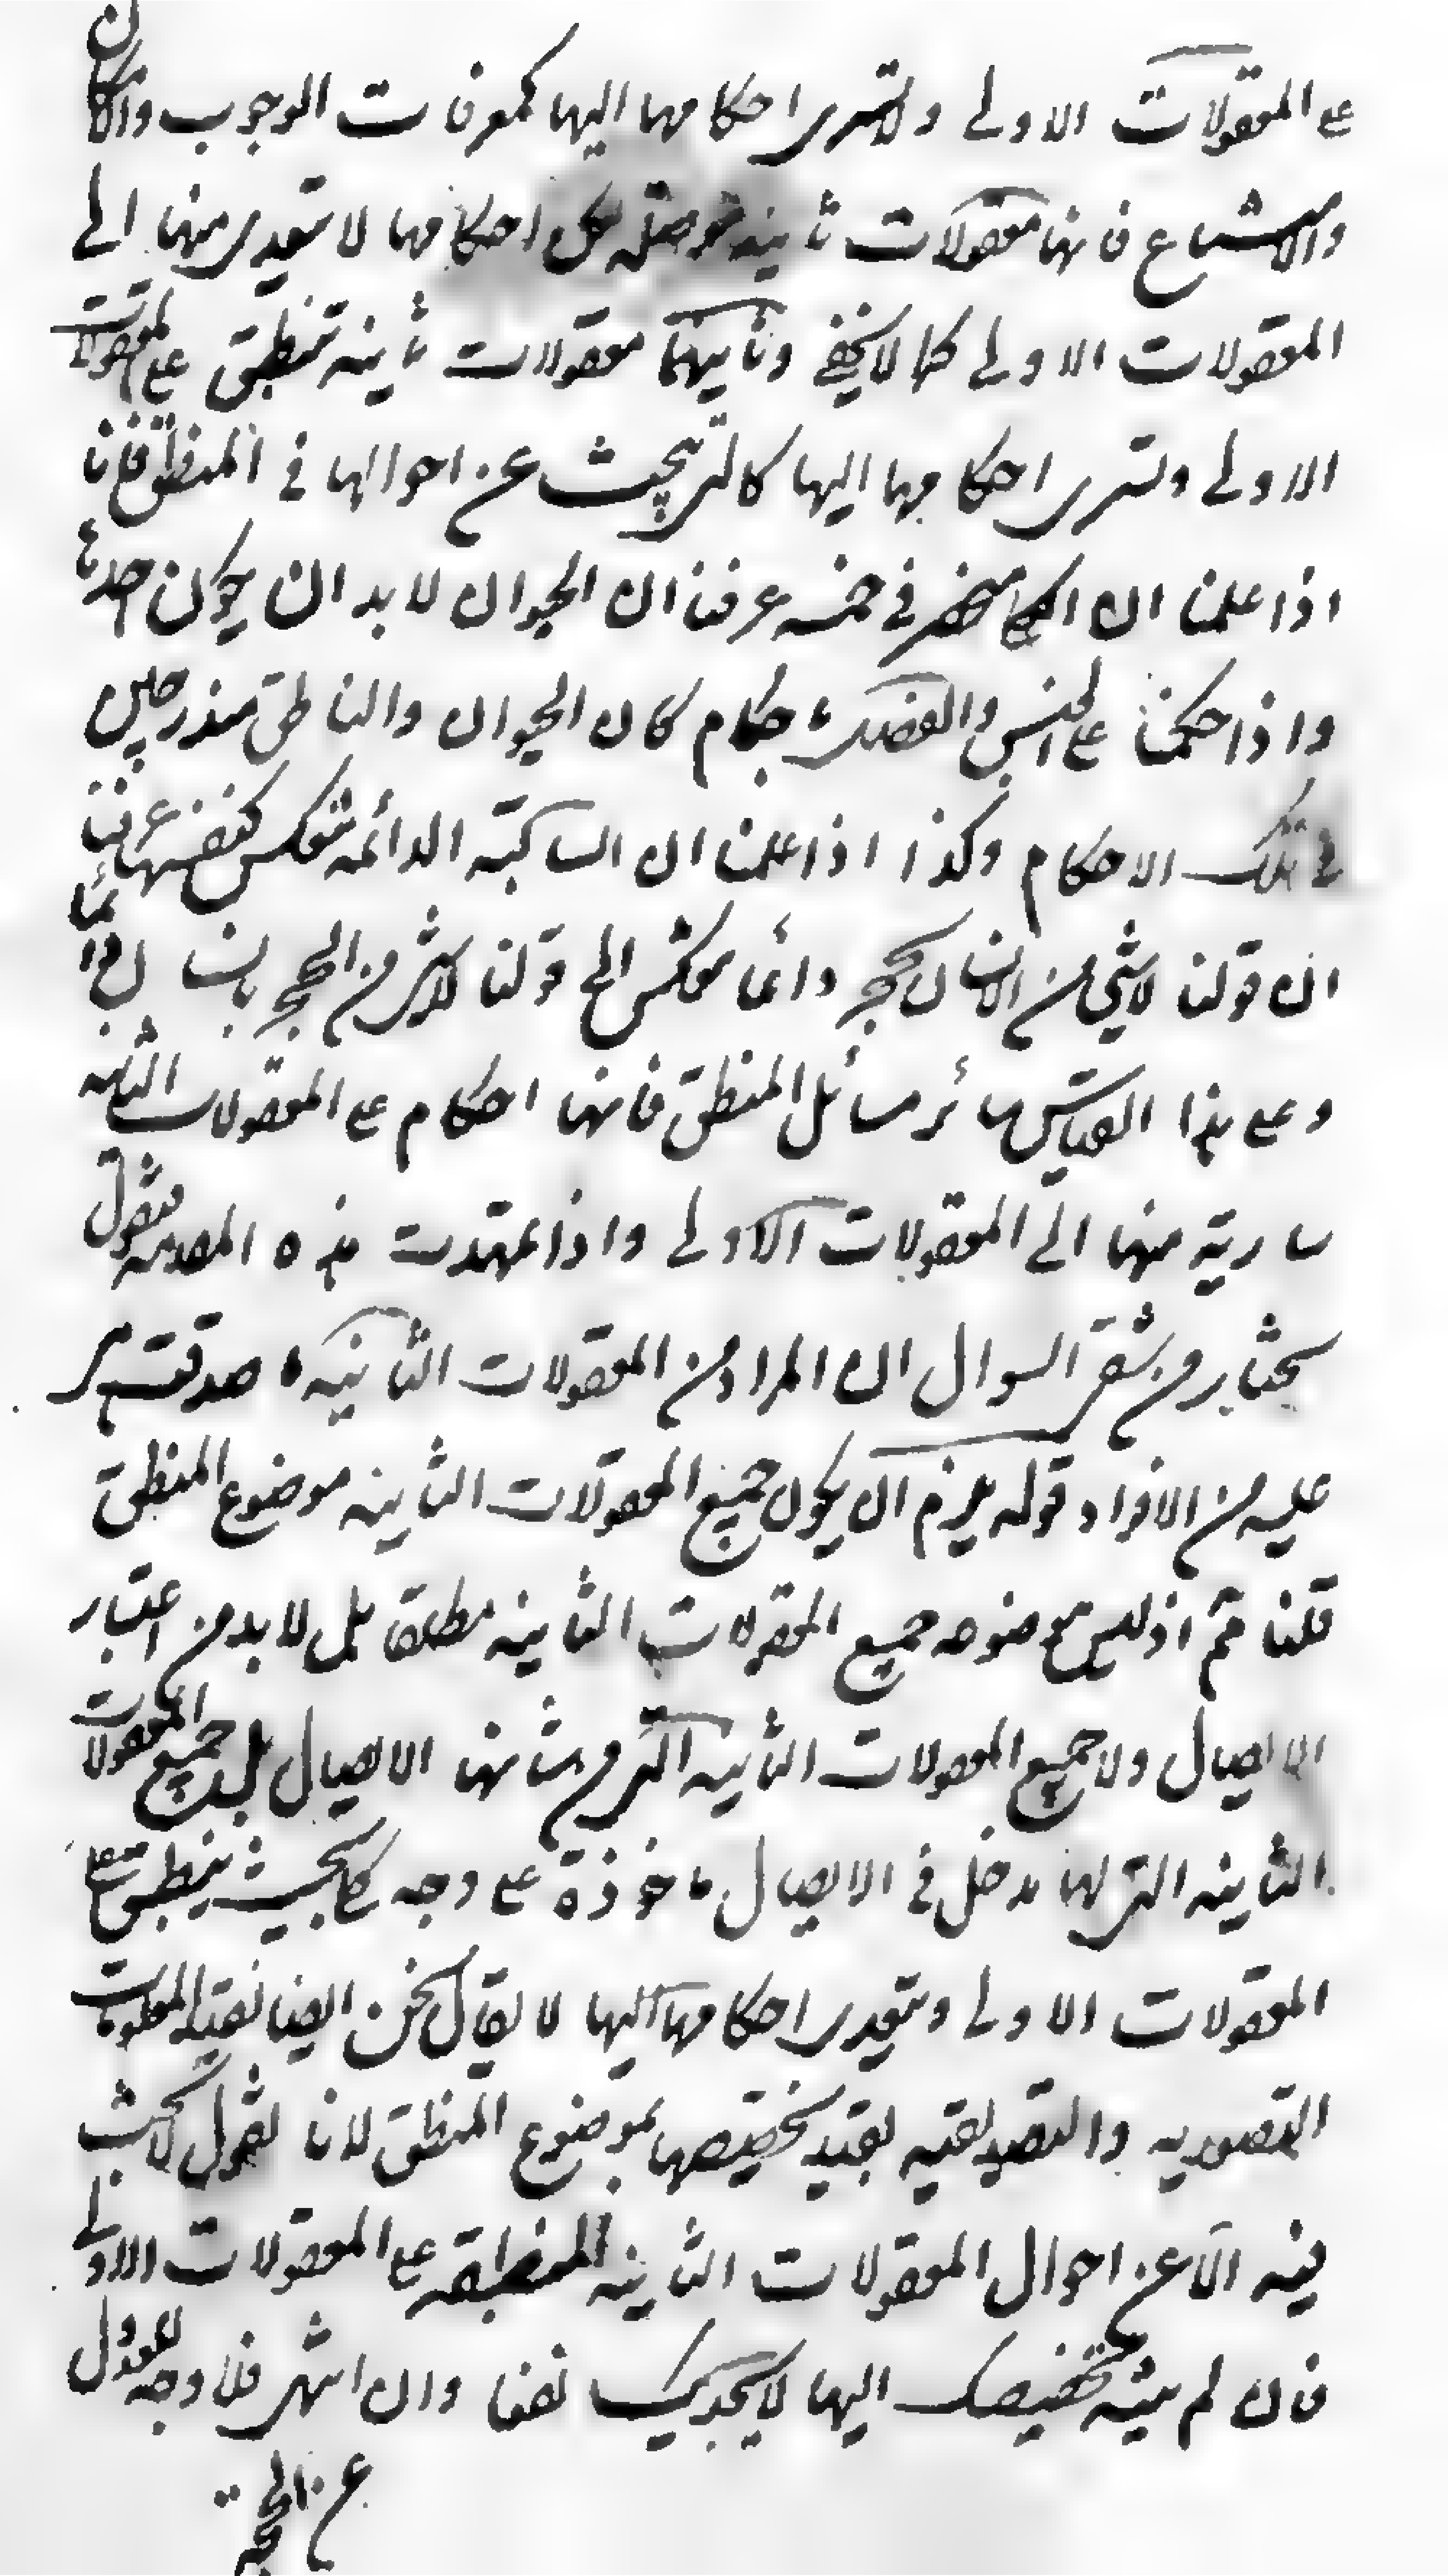 على المعقولات الاولى ولا تسرى احكامها اليها كمعرفات الوجوب والامكان
والامتناع فانها معقولات ثانية احكامها لا تتعدى منها الى
المعقولات الاولى كما لا يخفى وثانيهما معقولات ثانية تنطبق على المعقولات
الاولى وتسرى احكامها اليها كالتى يبحث عن احوالها فى المنطق فانا
اذا علمنا ان الكلى منحصر فى خمسة عرفنا ان الحيوان لا بد ان يكون احدها
واذا حكمنا على الجنس والفصل باحكام كان الحيوان والناطق مندرجين
فى تلك الاحكام وكذا اذا علمنا ان السالبة الدائمة تنعكس كنفسها عرفنا
ان قولنا لا شئ من الانسان بحجر دائما ينعكس الى قولنا لا شئ من الحجر بانسان دائما
وعلى هذا القياس سائر مسائل المنطق فانها احكام على المعقولات الثانية
سارية منها الى المعقولات الاولى واذا تمهدت هذه المقدمة فنقول
نختار من شقى السوال ان المراد من المعقولات الثانية ما صدقت هى
عليه من الافراد قوله يلزم ان يكون جميع المعقولات الثانية موضوع المنطق
قلنا مم اذ ليس موضوعه جميع المعقولات الثانية مطلقا بل لا بد من اعتبار
الايصال ولا جميع المعقولات الثانية التى من شانها الايصال بل جميع المعقولات
الثانية التى لها دخل فى الايصال ماخوذة على وجه كلى بحيث ينطبق على
المعقولات الاولى وتتعدى احكامها اليها لا يقال نحن ايضا نقيد المعلومات
التصورية والتصديقية بقيد يخصصها بموضوع المنطق لانا نقول لا يبحث
فيه الا عن احوال المعقولات الثانية المنطبقة على المعقولات الاولى
فان لم ينته تخصيصك اليها لا يجديك نفعا وان انتهى فلا وجه للعدول
عن الحجة